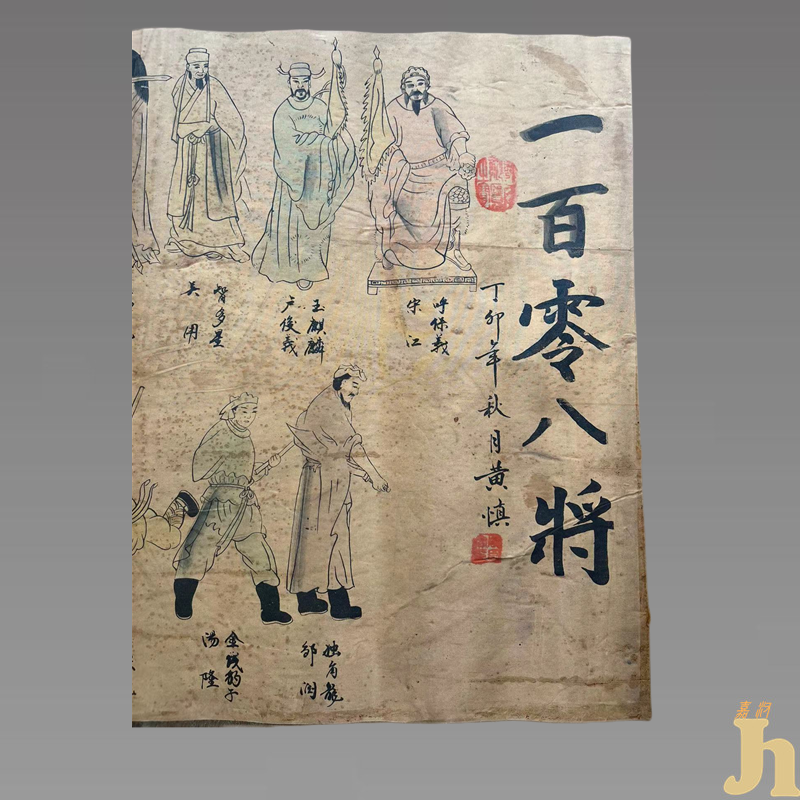 一百零八將
丁卯年秋月黄慎
呼保義
宋江
玉麒麟
卢俊義
智多星
吴用
独角龍
邹闰
金钱豹子
湯隆
嘉河
jh